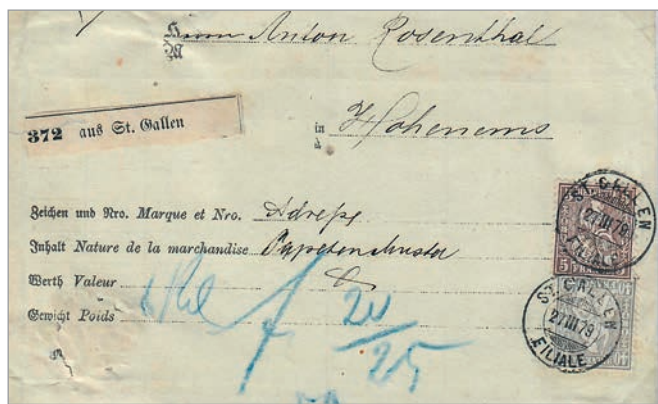 Herrn Anton Rosenthal
M
372 aus St. Gallen
in Hohenems
à
Zeichen und Nro. Marque et Nro. Adresse
Inhalt Nature de la marchandise
Werth Valeur
Gewicht Poids
20
25
ST. GALLEN
27 III 79
FILIALE
5
ST. GALLEN
27 III 79
FILIALE
40